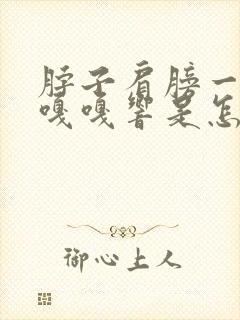 脖子肩膀一
嘎嘎響是怎
御心上人